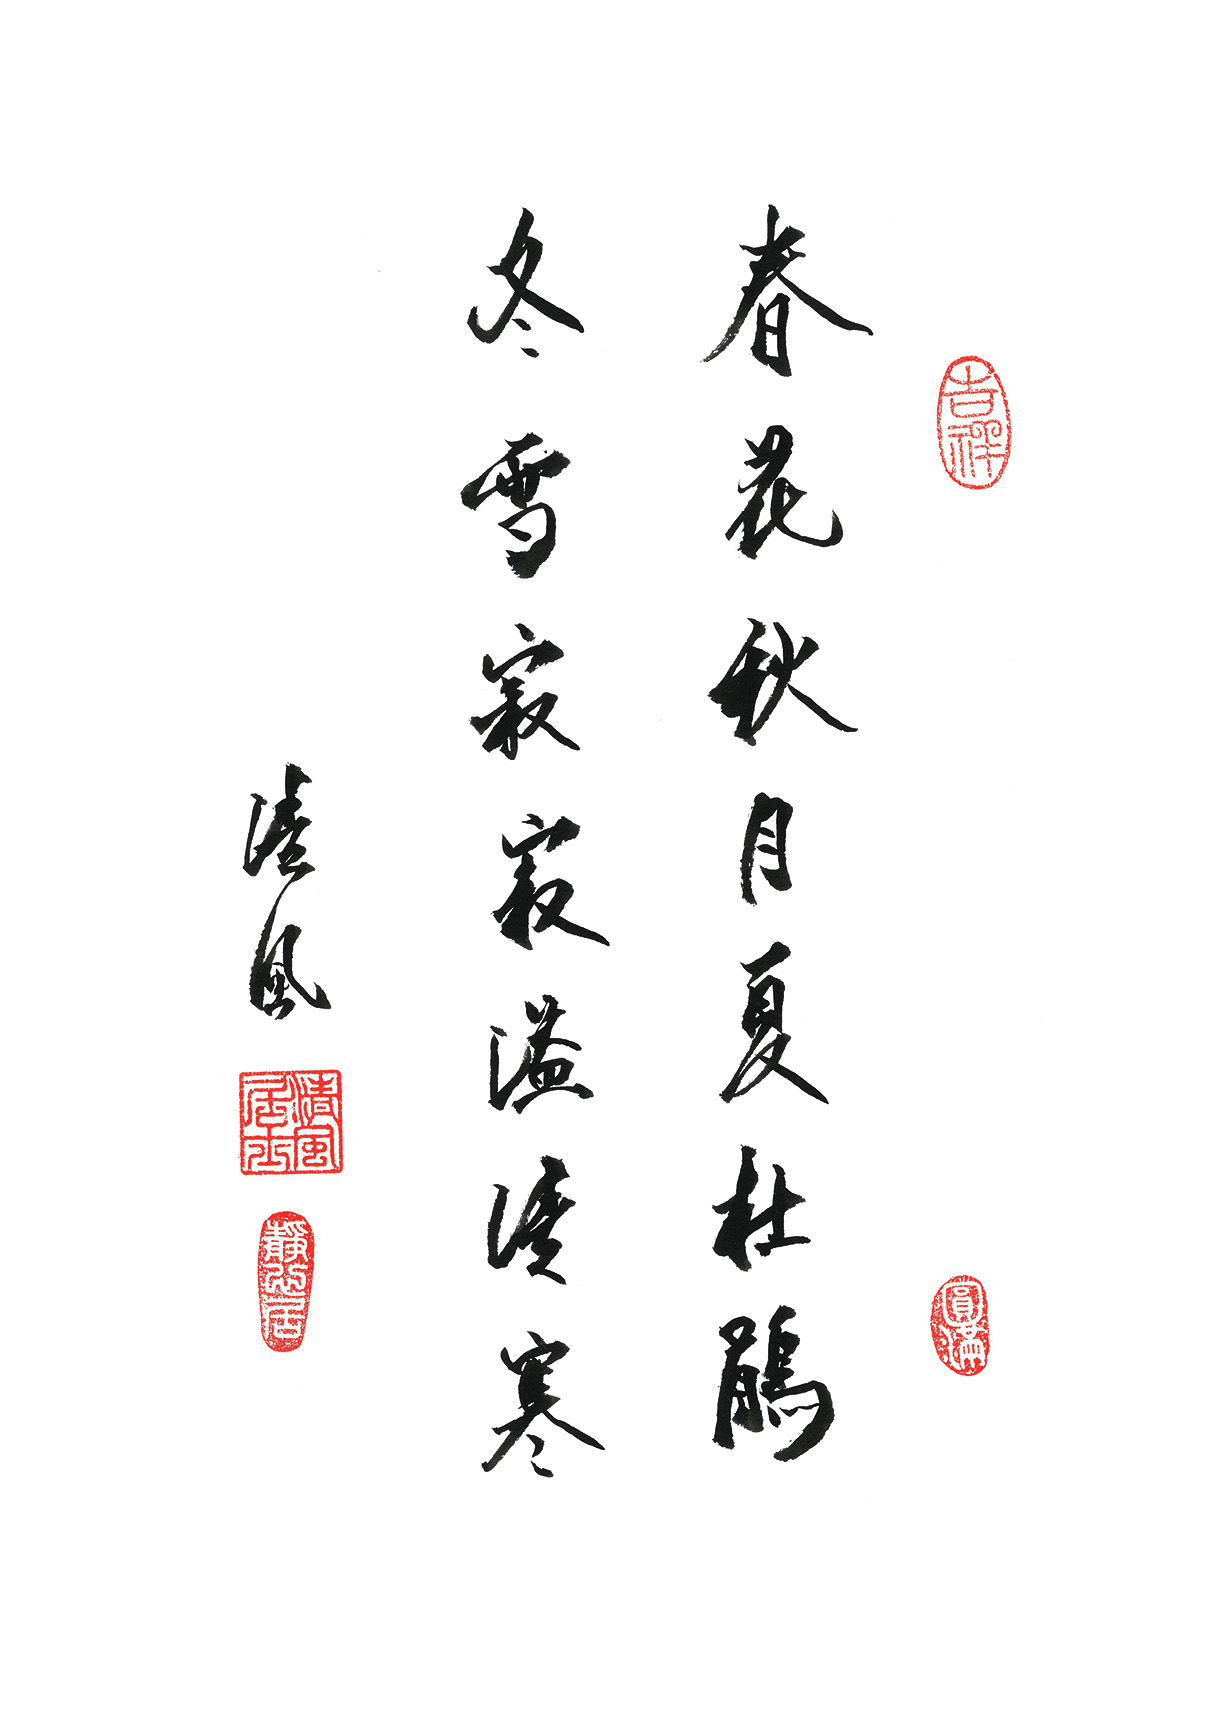 春花秋月夏杜鵑
冬雪寂寂溢清寒
清風
吉祥
圓滿
清風居士
靜心居